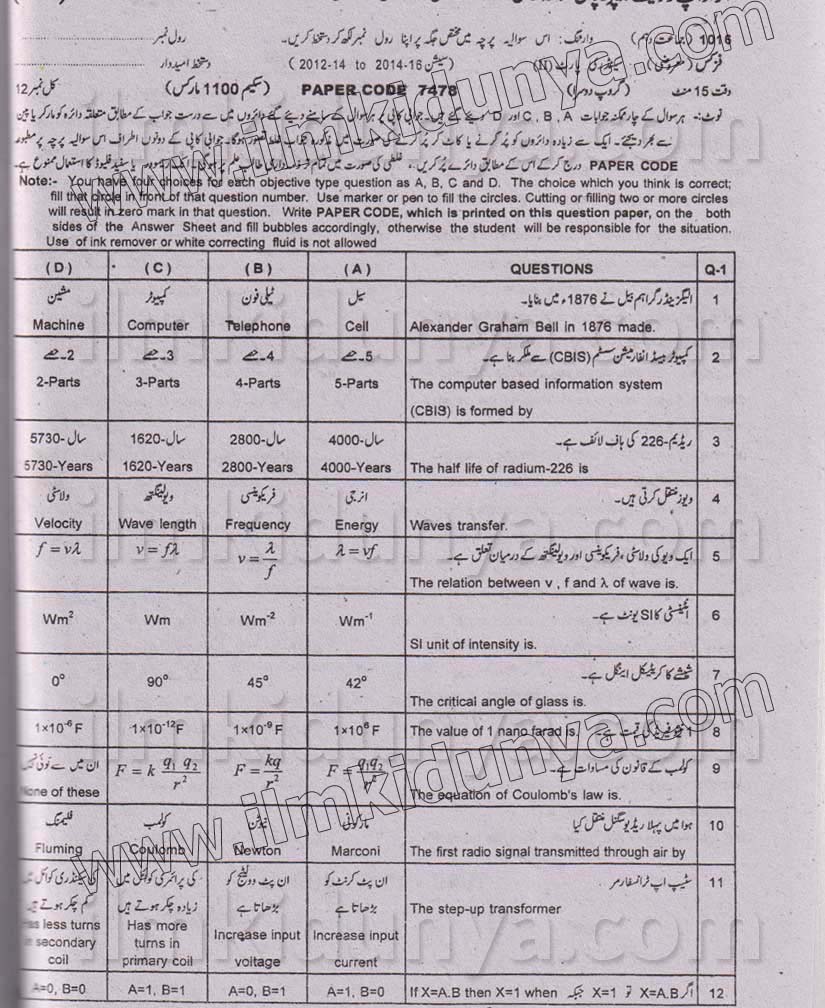 1016 (جماعت دہم) وارننگ: اس سوالیہ پرچہ میں مختص جگہ پر اپنا رول نمبر لکھ کر دستخط کریں۔ رول نمبر
فزکس (معروضی) (N) (سیشن 2014-16 to 2012-14) دستخط امیدوار
وقت 15 منٹ (گروپ دوسرا) PAPER CODE 7478 (سکیم 1100 مارکس) کل نمبر 12
نوٹ:- ہر سوال کے چار ممکنہ جوابات A ، B ، C اور D دیئے گئے ہیں۔ جوابی کاپی پر ہر سوال کے سامنے دیئے گئے دائروں میں سے درست جواب کے مطابق متعلقہ دائرہ کو مارکر یا پین
سے بھر دیجئے۔ ایک سے زیادہ دائروں کو پُر کرنے یا کاٹ کر پُر کرنے کی صورت میں مذکورہ جواب غلط تصور ہوگا۔ جوابی کاپی کے دونوں اطراف اس سوالیہ پرچہ پر مطبوعہ
PAPER CODE درج کر کے اس کے مطابق دائرے پُر کریں، غلطی کی صورت میں تمام تر ذمہ داری طالب علم پر ہوگی۔ یا سفید فلیوڈ کا استعمال ممنوع ہے۔
Note:- You have four choices for each objective type question as A, B, C and D. The choice which you think is correct;
fill that circle in front of that question number. Use marker or pen to fill the circles. Cutting or filling two or more circles
will result in zero mark in that question. Write PAPER CODE, which is printed on this question paper, on the both
sides of the Answer Sheet and fill bubbles accordingly, otherwise the student will be responsible for the situation.
Use of ink remover or white correcting fluid is not allowed
(D) (C) (B) (A) QUESTIONS Q-1
مشین کمپیوٹر ٹیلی فون سیل الیگزینڈر گراہم بیل نے 1876ء میں بنایا۔ 1
Machine Computer Telephone Cell Alexander Graham Bell in 1876 made.
2-حصے 3-حصے 4-حصے 5-حصے کمپیوٹر بیسڈ انفارمیشن سسٹم (CBIS) سے ملکر بنا ہے۔ 2
2-Parts 3-Parts 4-Parts 5-Parts The computer based information system
(CBIS) is formed by
5730-سال 1620-سال 2800-سال 4000-سال ریڈیم-226 کی ہاف لائف ہے۔ 3
5730-Years 1620-Years 2800-Years 4000-Years The half life of radium-226 is
ولاسٹی ویولینگتھ فریکوئنسی انرجی ویوز منتقل کرتی ہیں۔ 4
Velocity Wave length Frequency Energy Waves transfer.
f = vλ v = fλ v = λ/f λ = vf ایک ویو کی ولاسٹی، فریکوئنسی اور ویولینگتھ کے درمیان تعلق ہے۔ 5
The relation between v , f and λ of wave is.
انٹینسٹی کا SI یونٹ ہے۔ 6
Wm² Wm Wm⁻² Wm⁻¹
SI unit of intensity is.
شیشے کا کریٹیکل اینگل ہے۔ 7
0° 90° 45° 42°
The critical angle of glass is.
1×10⁻⁶ F 1×10⁻¹²F 1×10⁻⁹ F 1×10⁶ F The value of 1 nano farad is. 1 نینو فیریڈ کی قیمت ہے۔ 8
ان میں سے کوئی نہیں F = k q₁ q₂/r² F = kq/r² F = q₁q₂/r² کولمب کے قانون کی مساوات ہے۔ 9
None of these The equation of Coulomb's law is.
فلیمنگ کولمب نیوٹن مارکونی ہوا میں پہلا ریڈیو سگنل منتقل کیا 10
Fluming Coulomb Newton Marconi The first radio signal transmitted through air by
کی سیکنڈری کوائل میں کی پرائمری کوائل میں ان پٹ وولٹیج کو ان پٹ کرنٹ کو سٹیپ اپ ٹرانسفارمر 11
کم چکر ہوتے ہیں زیادہ چکر ہوتے ہیں بڑھاتا ہے بڑھاتا ہے The step-up transformer
Has less turns Has more Increase input Increase input
secondary turns in voltage current
coil primary coil
A=0, B=0 A=1, B=1 A=0, B=1 A=1, B=0 If X=A.B then X=1 when اگر X=A.B تو X=1 جبکہ 12
www.ilmkidunya.com
www.ilmkidunya.com
ilmkidunya.com
ilmkidunya.com
ilmkidunya.com
ilmkidunya.com